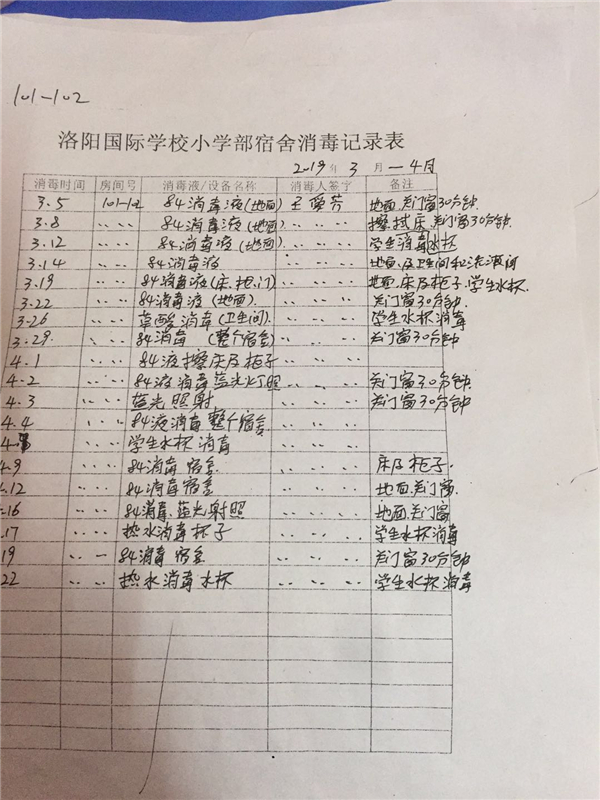 101-102
洛阳国际学校小学部宿舍消毒记录表
2019年 3 月 — 4月
消毒时间 房间号 消毒液/设备名称 消毒人签字 备注
3.5 101-102 84消毒液(地面) 王 芳 地面.关门窗30分钟.
3.8 〃 〃 84消毒液(地面). 〃 〃 〃 擦拭床.关门窗30分钟.
3.12 〃 〃 84消毒液(地面). 〃 〃 〃 学生消毒水杯
3.14 〃 〃 84消毒液 〃 〃 〃 地面.及卫生间和洗漱间
3.19 〃 〃 84消毒液(床.柜.门) 〃 〃 〃 地面.床及柜子.学生水杯.
3.22 〃 〃 84消毒液(地面). 〃 〃 〃 关门窗30分钟.
3.26 〃 〃 草酸消毒(卫生间). 〃 〃 〃 学生水杯消毒
3.29. 〃 〃 84消毒 (整个宿舍) 〃 〃 〃 关门窗30分钟
4.1 〃 〃 84液擦床及柜子 〃 〃 〃
4.2 〃 〃 84液消毒蓝光灯照 〃 〃 〃 关门窗30分钟.
4.3 〃 〃 蓝光照射 〃 〃 〃 关门窗30分钟
4.4 〃 〃 84液消毒整个宿舍 〃 〃 〃
4. 〃 〃 学生水杯消毒 〃 〃 〃
4.9 〃 〃 84消毒宿舍. 〃 〃 〃 床及柜子.
.12 〃 〃 84消毒宿舍 〃 〃 〃 地面.关门窗.
.16 〃 〃 84消毒.蓝光射照 〃 〃 〃 地面.关门窗
.17 〃 〃 热水消毒杯子 〃 〃 〃 学生水杯消毒
19 〃 〃 84消毒宿舍 〃 〃 〃 关门窗30分钟
22 〃 〃 热水消毒水杯 〃 〃 〃 学生水杯消毒